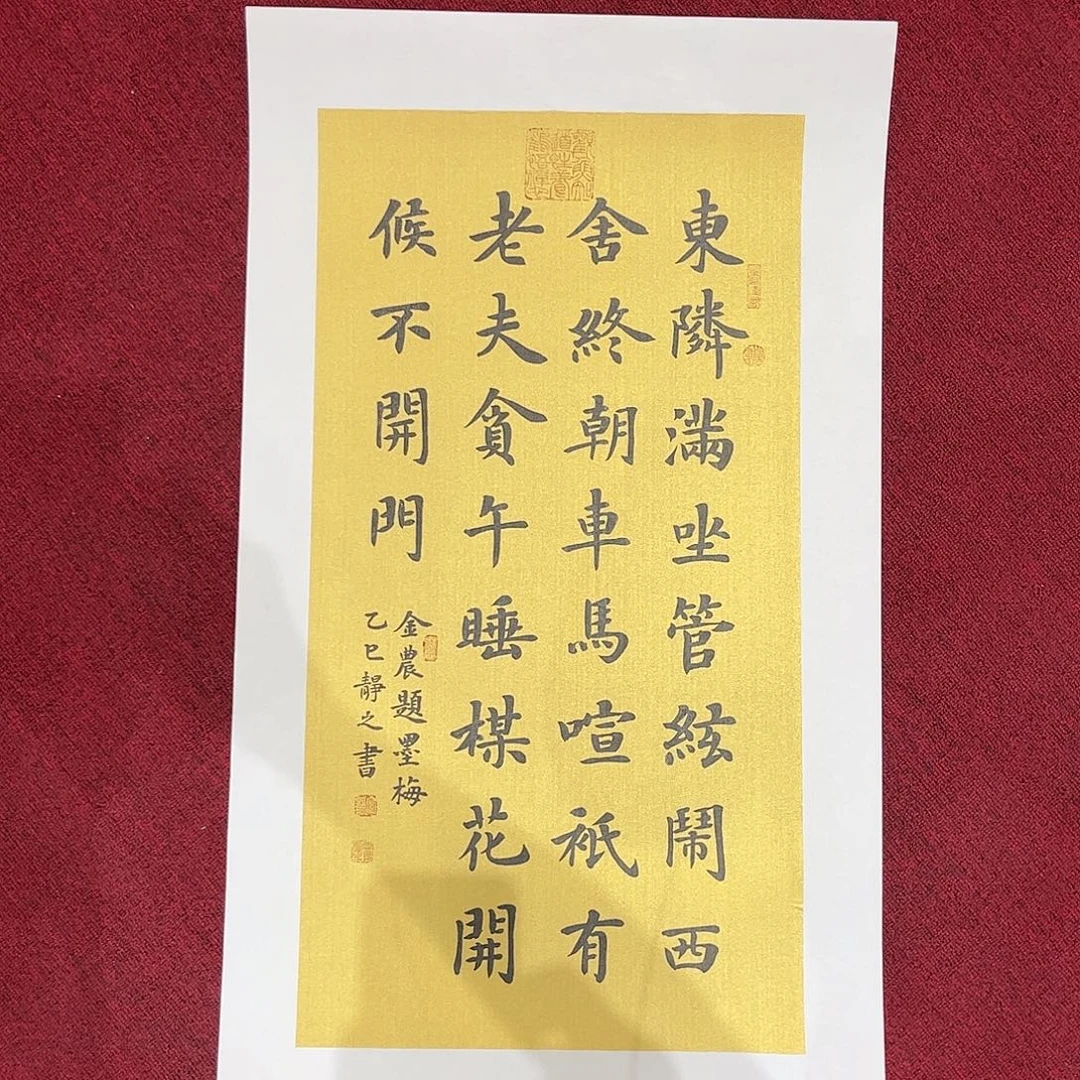 東隣滿坐管絃鬧西
舍終朝車馬喧祇有
老夫貪午睡楳花開
候不開門
金農題墨梅
乙巳靜之書